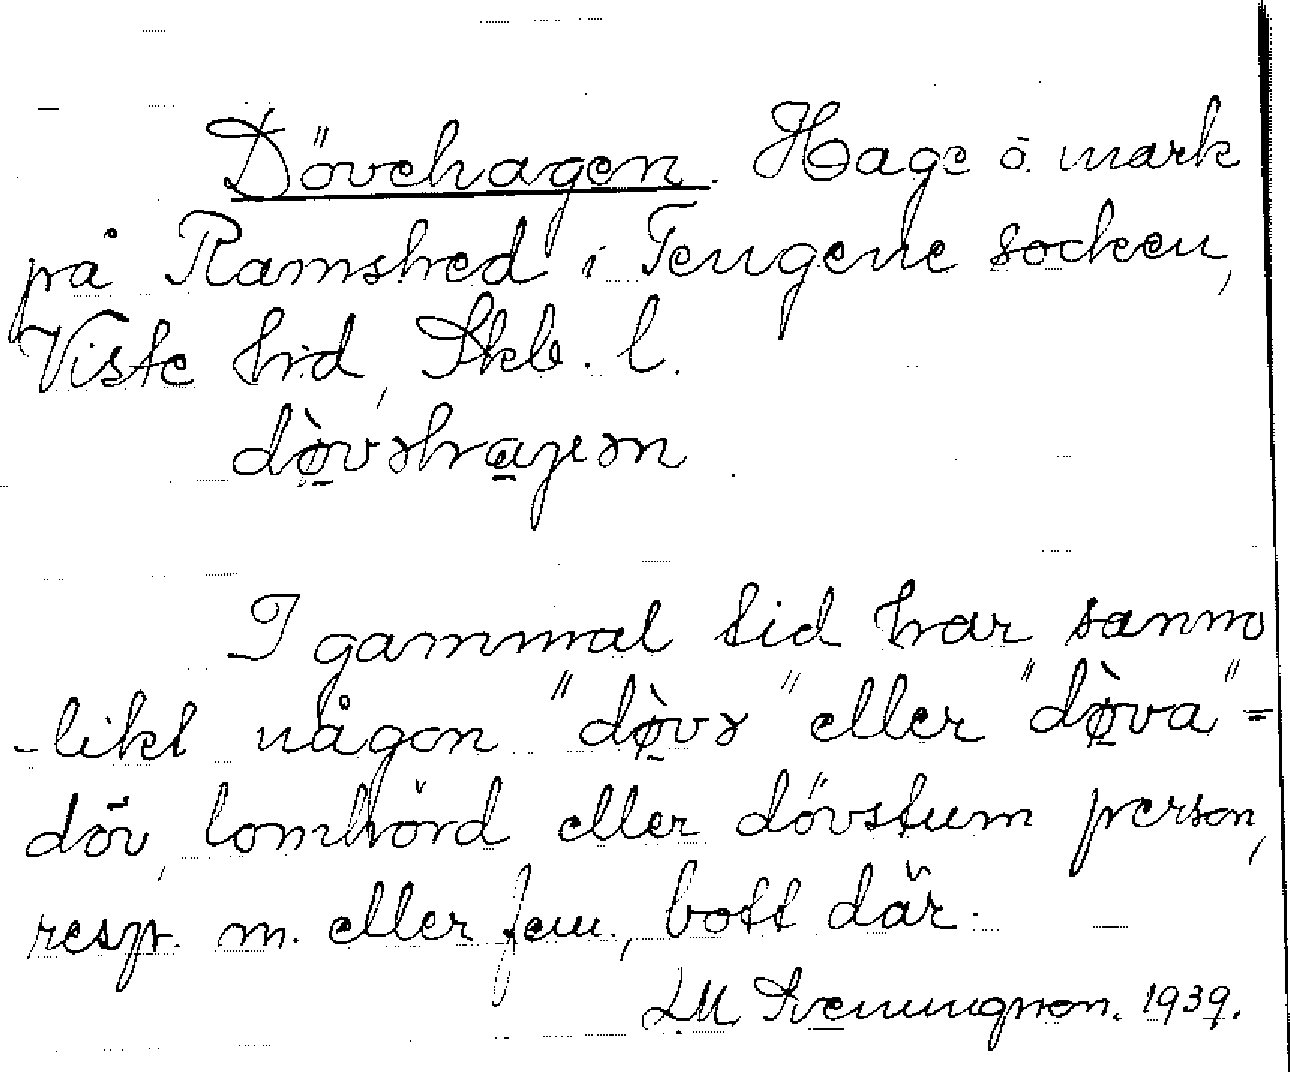 Dövehagen. Hage ö. mark
på Ramshed i Tengene socken,
Viste hrd, Skb. l.
I gammal tid har sanno
-likt någon "dø̀və" eller "dø̀va" =
döv, lomhörd eller dövstum person,
resp. m. eller fem., bott där.
LM Svenungsson. 1939.